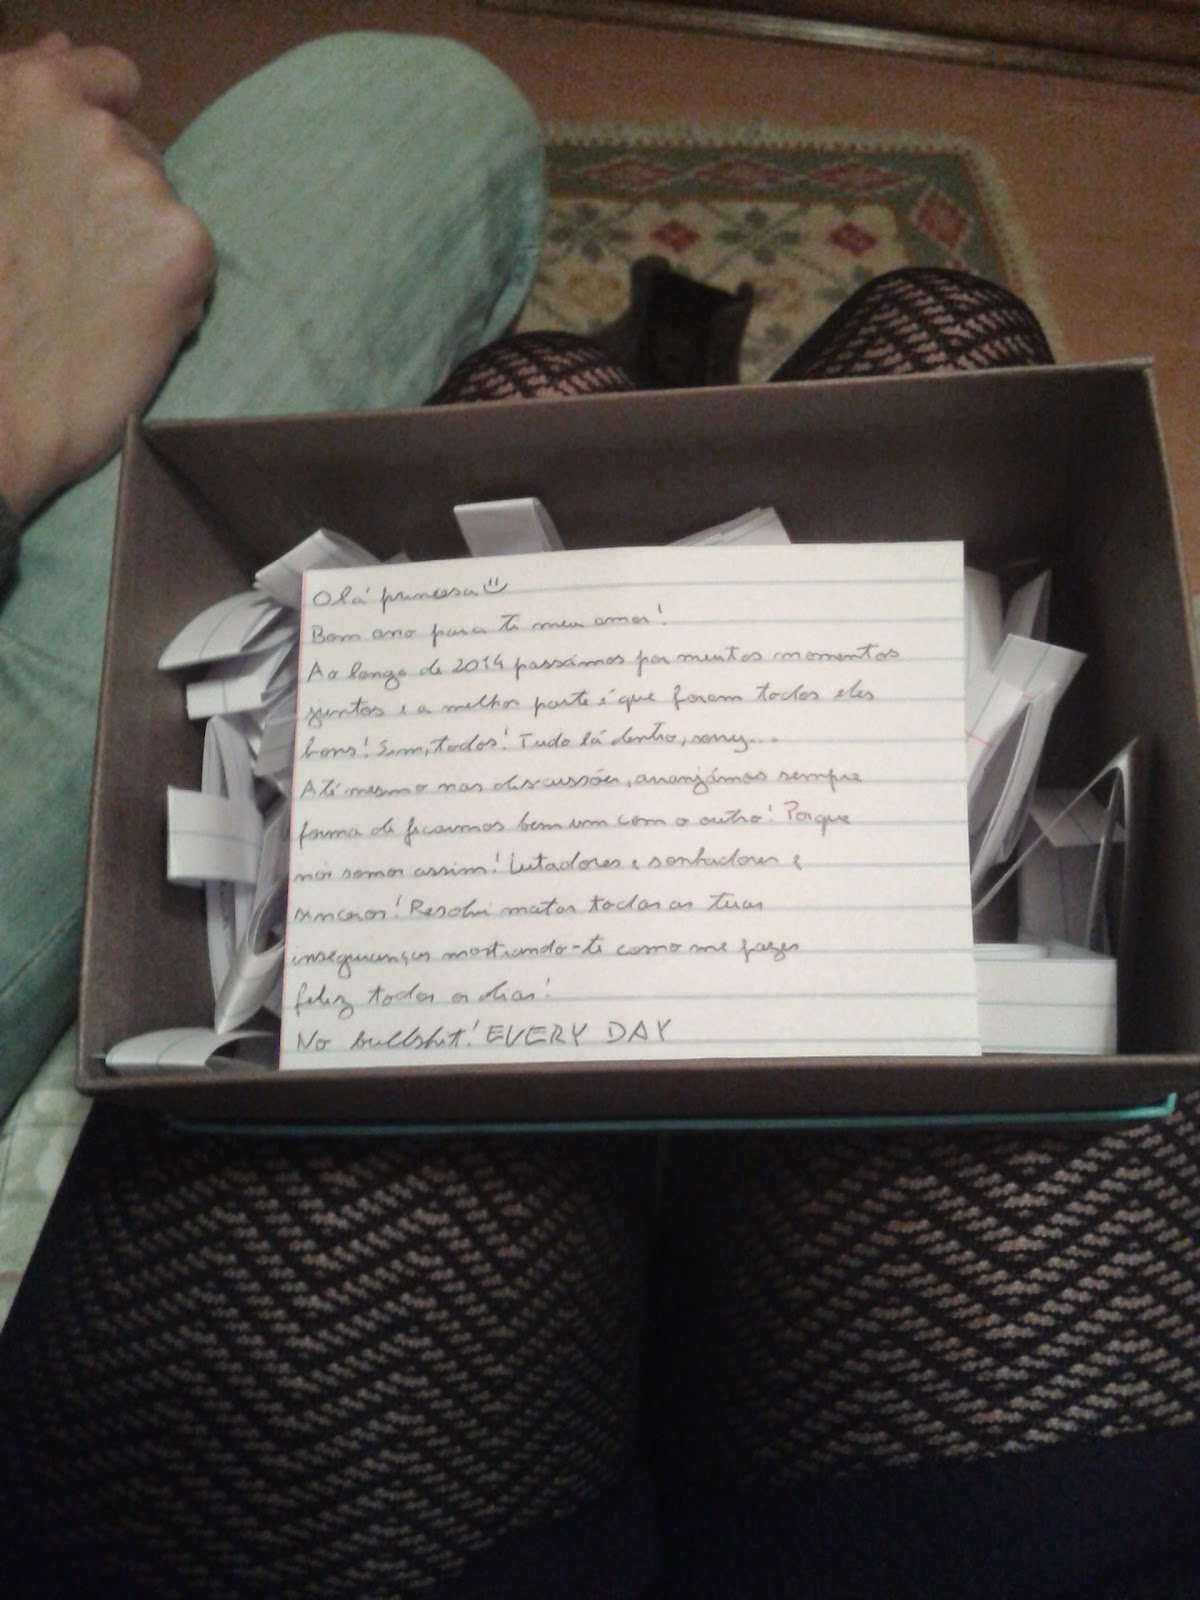 Olá princesa
Bom ano para ti meu amor!
Ao longo de 2014 passámos por muitos momentos
juntos e a melhor parte é que foram todos eles
bons! Sim, todos! Tudo lá dentro, sorry...
Até mesmo nas discussões, arranjámos sempre
forma de ficarmos bem um com o outro! Porque
nós somos assim! Lutadores e sonhadores e
sinceros! Resolvi matar todas as tuas
inseguranças mostrando-te como me fazes
feliz todos os dias!
No bullshit! EVERY DAY